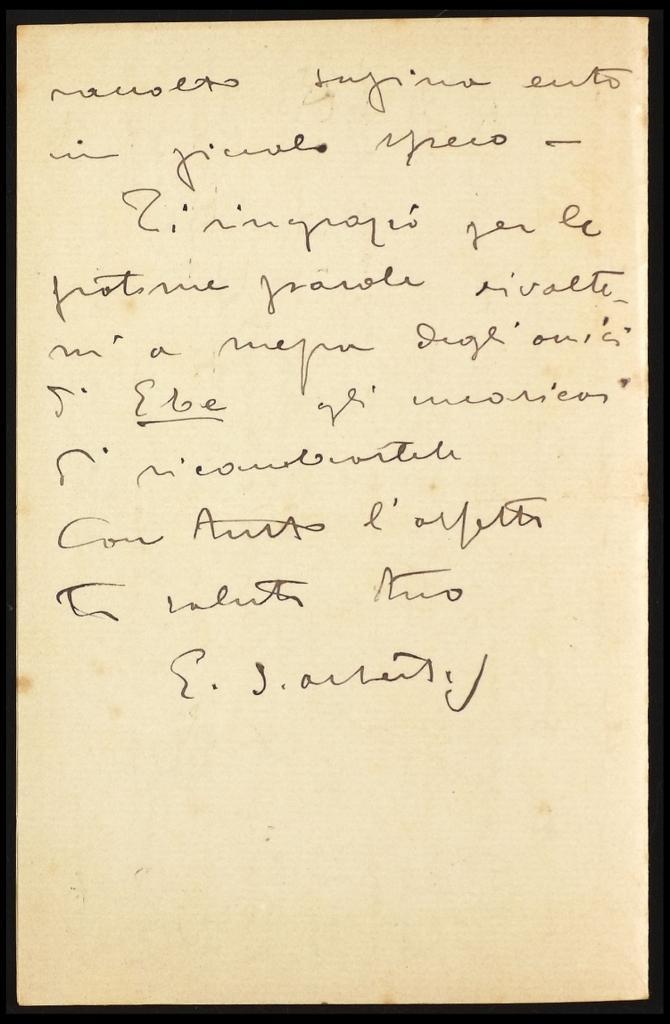 raccolto
in piccolo speco —
Ti ringrazio per le
parole rivolte-
mi a mezzo degli amici
di Ebe gli incaricai
di ricambiartele
Con tutto l'affetto
Ti saluto tuo
E.